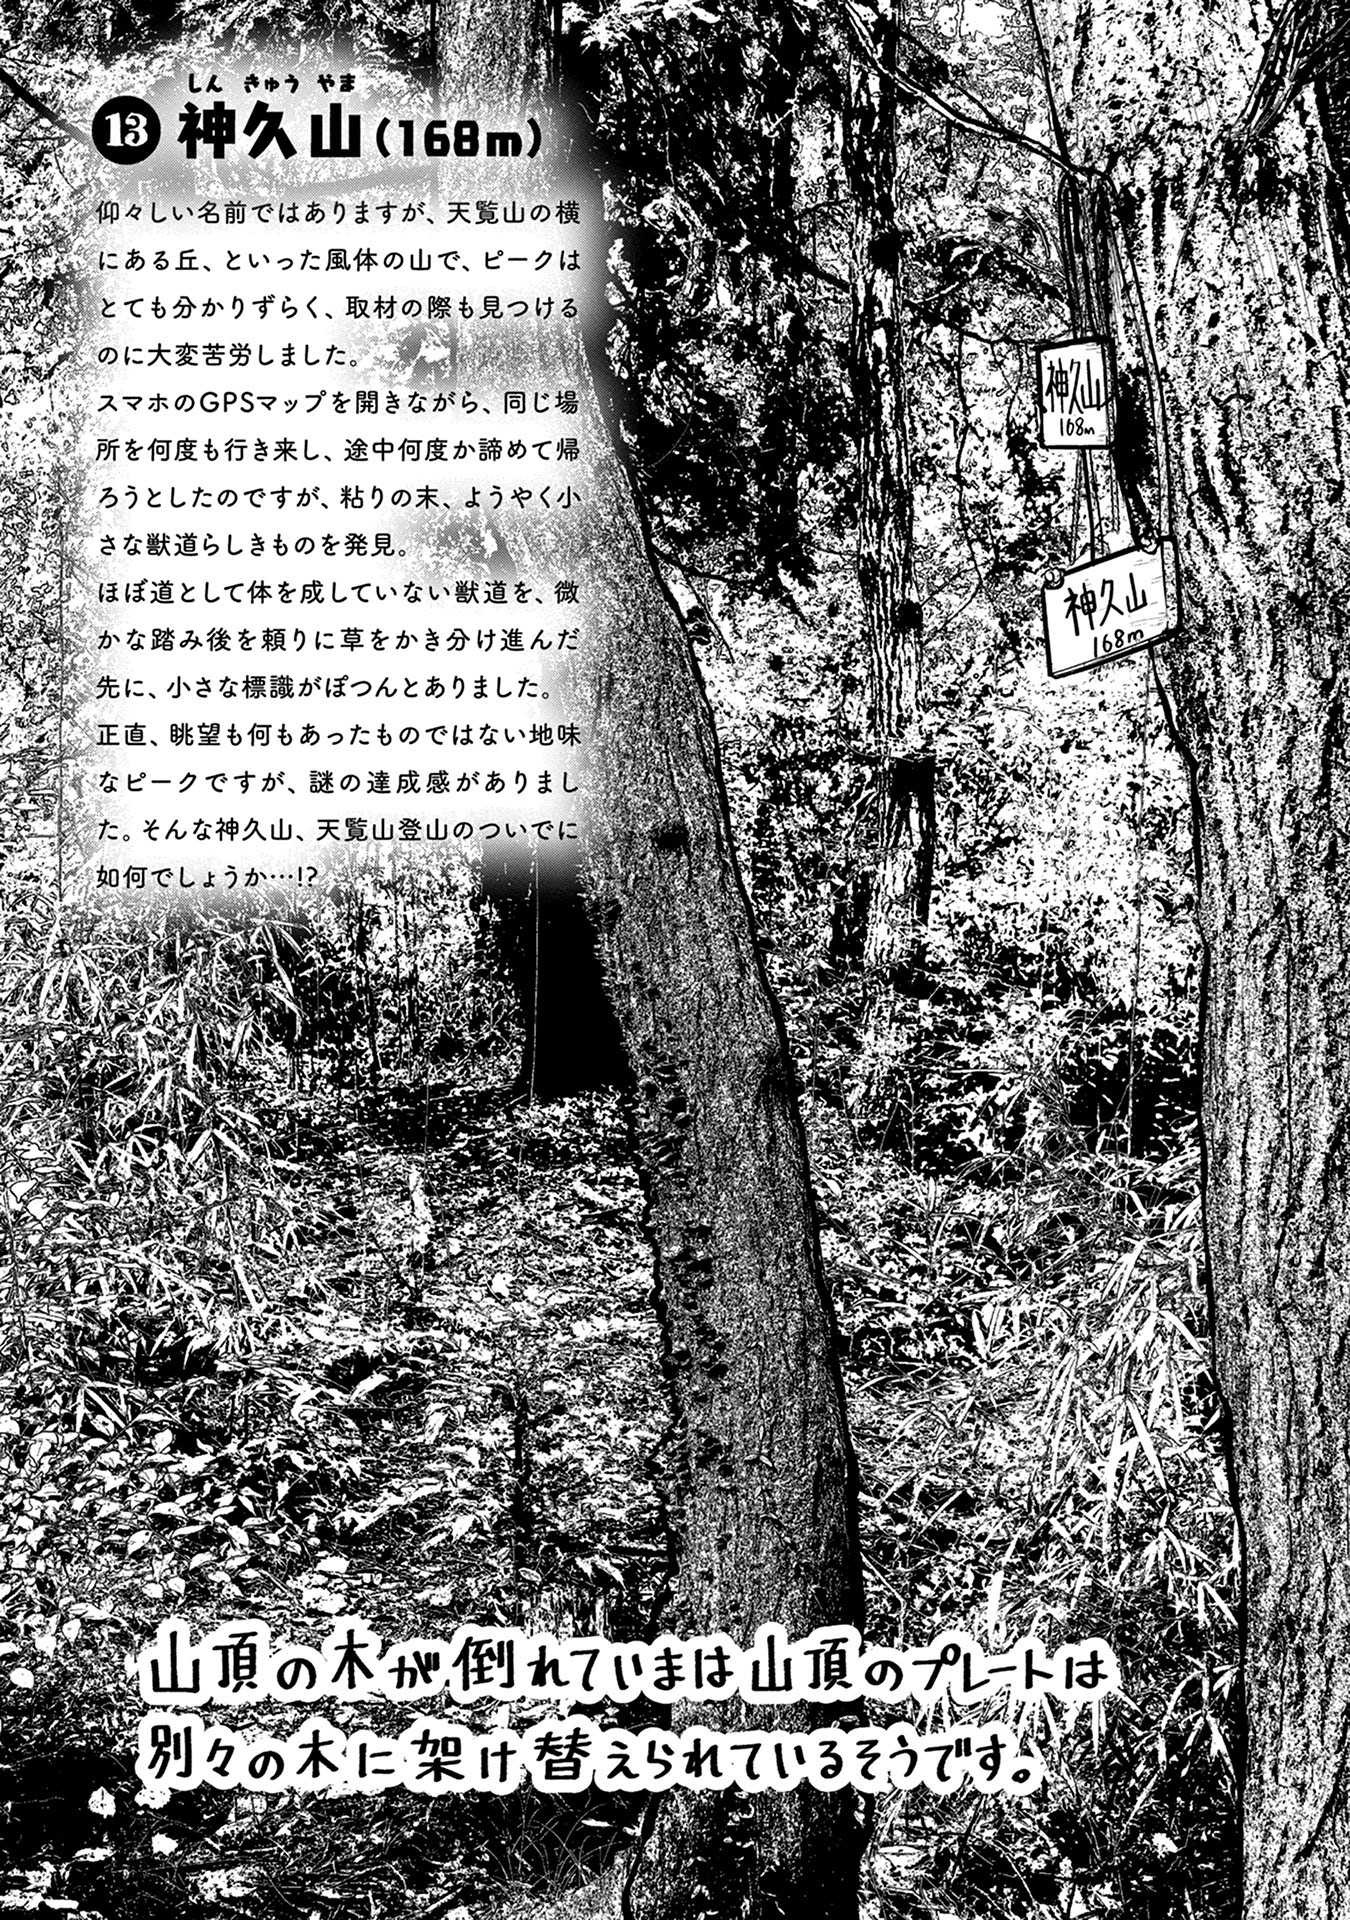 しんきゅうやま
13 神久山(168m)
仰々しい名前ではありますが、天覧山の横
にある丘、といった風体の山で、ピークは
とても分かりずらく、取材の際も見つける
のに大変苦労しました。
スマホのGPSマップを開きながら、同じ場
所を何度も行き来し、途中何度か諦めて帰
ろうとしたのですが、粘りの末、ようやく小
さな獣道らしきものを発見。
ほぼ道として体を成していない獣道を、微
かな踏み後を頼りに草をかき分け進んだ
先に、小さな標識がぽつんとありました。
正直、眺望も何もあったものではない地味
なピークですが、謎の達成感がありまし
た。そんな神久山、天覧山登山のついでに
如何でしょうか…!?
神久山
168m
神久山
168m
山頂の木が倒れていまは山頂のプレートは
別々の木に架け替えられているそうです。